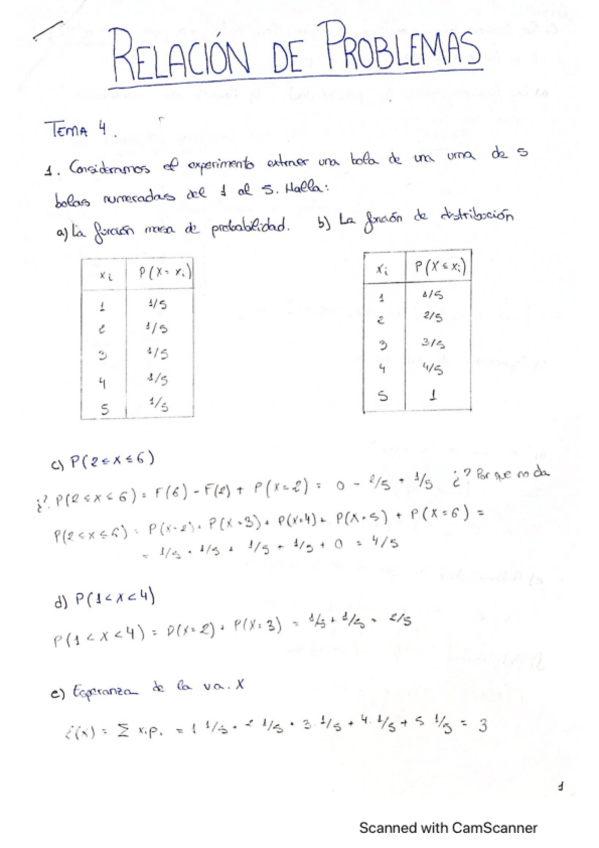 RELACIÓN DE PROBLEMAS
TEMA 4.
1. Consideramos el experimento extraer una bola de una urna de 5
bolas numeradas del 1 al 5. Halla:
a) La función masa de probabilidad. b) La función de distribución
xi P(X = xi)
1 1/5
2 1/5
3 1/5
4 1/5
5 1/5
xi P(X ≤ xi)
1 1/5
2 2/5
3 3/5
4 4/5
5 1
c) P(2 ≤ X ≤ 6)
¿?. P(2 ≤ X ≤ 6) = F(6) - F(2) + P(X = 2) = 0 - 2/5 + 1/5 ¿? Por que no da
P(2 ≤ X ≤ 6) = P(X = 2) + P(X = 3) + P(X = 4) + P(X = 5) + P(X = 6) =
= 1/5 + 1/5 + 1/5 + 1/5 + 0 = 4/5
d) P(1 < X < 4)
P(1 < X < 4) = P(X = 2) + P(X = 3) = 1/5 + 1/5 = 2/5
e) Esperanza de la va. X
E(x) = Σ xi pi = 1 1/5 + 2 1/5 + 3 1/5 + 4 1/5 + 5 1/5 = 3
1
Scanned with CamScanner